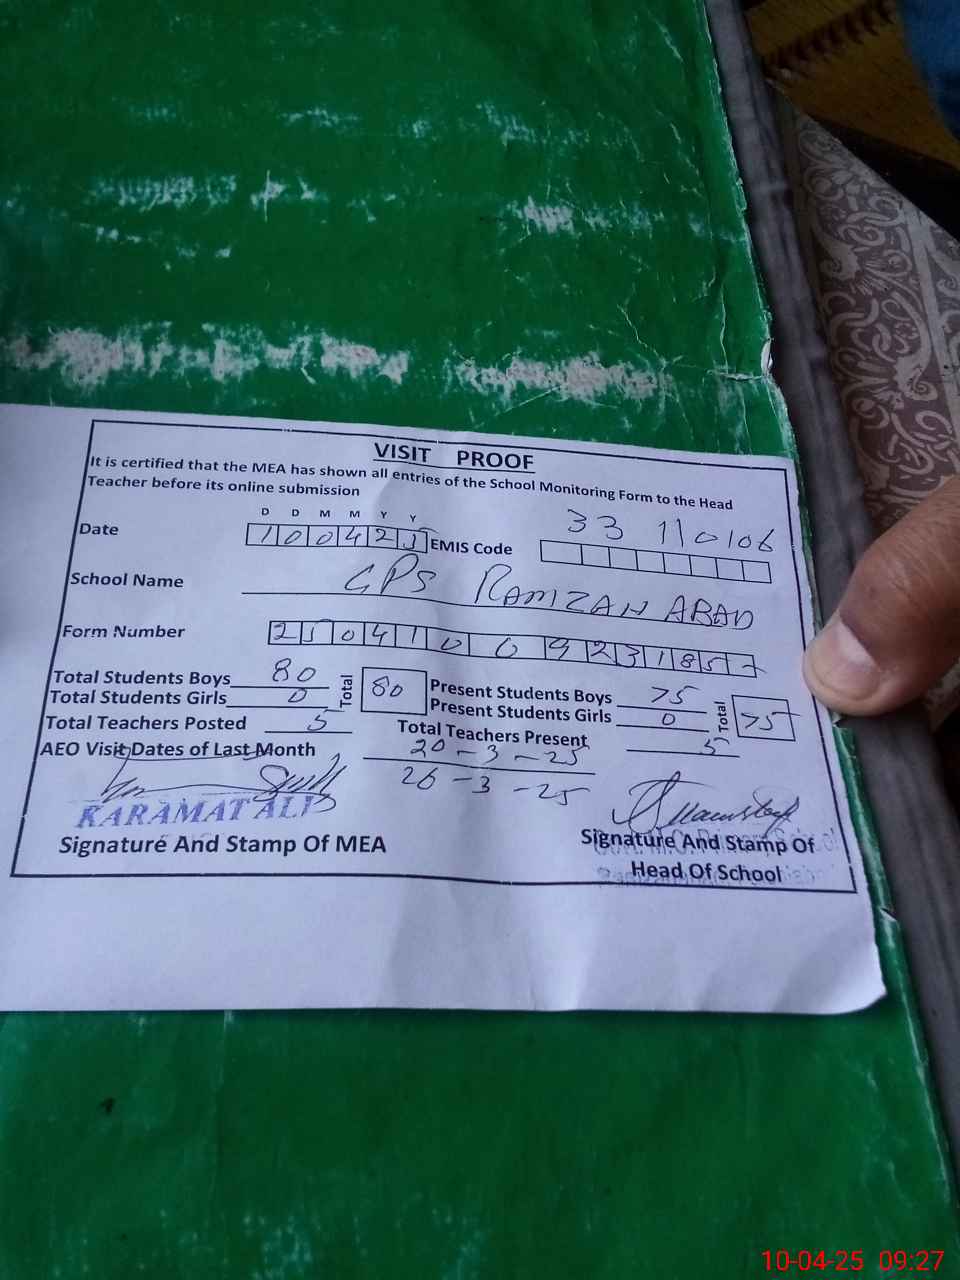 VISIT PROOF
It is certified that the MEA has shown all entries of the School Monitoring Form to the Head
Teacher before its online submission
D D M M Y Y
Date 100425 EMIS Code 33110106
School Name GPS RAMZAN ABAD
Form Number 2504100923185
Total Students Boys 80 Total 80 Present Students Boys 75 Total 75
Total Students Girls 0 Present Students Girls 0
Total Teachers Posted 5 Total Teachers Present 5
AEO Visit Dates of Last Month 20-3-25
26-3-25
KARAMAT ALI
Signature And Stamp Of MEA
Signature And Stamp Of
Head Of School
10-04-25 09:27